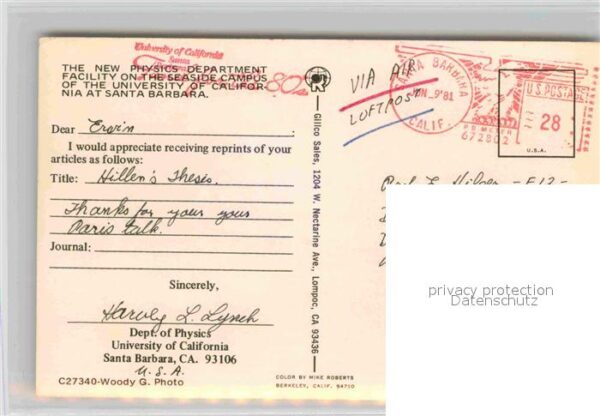 University of California
Santa
80s
THE NEW PHYSICS DEPARTMENT
FACILITY ON THE SEASIDE CAMPUS
OF THE UNIVERSITY OF CALIFOR-
NIA AT SANTA BARBARA.
VIA AIR
LUFTPOST
SANTA BARBARA
JUN.-9'81
CALIF.
PB METER
672802
U.S. POSTAGE
28
U.S.A.
Dear Erwin
I would appreciate receiving reprints of your
articles as follows:
Title: Hillen's Thesis.
Thanks for your your
Paris talk.
Journal:
Sincerely,
Harvey L. Lynch
Dept. of Physics
University of California
Santa Barbara, CA. 93106
U.S.A.
C27340-Woody G. Photo
Gillco Sales, 1204 W. Nectarine Ave., Lompoc, CA 93436
COLOR BY MIKE ROBERTS
BERKELEY, CALIF. 94710
E
privacy protection
Datenschutz